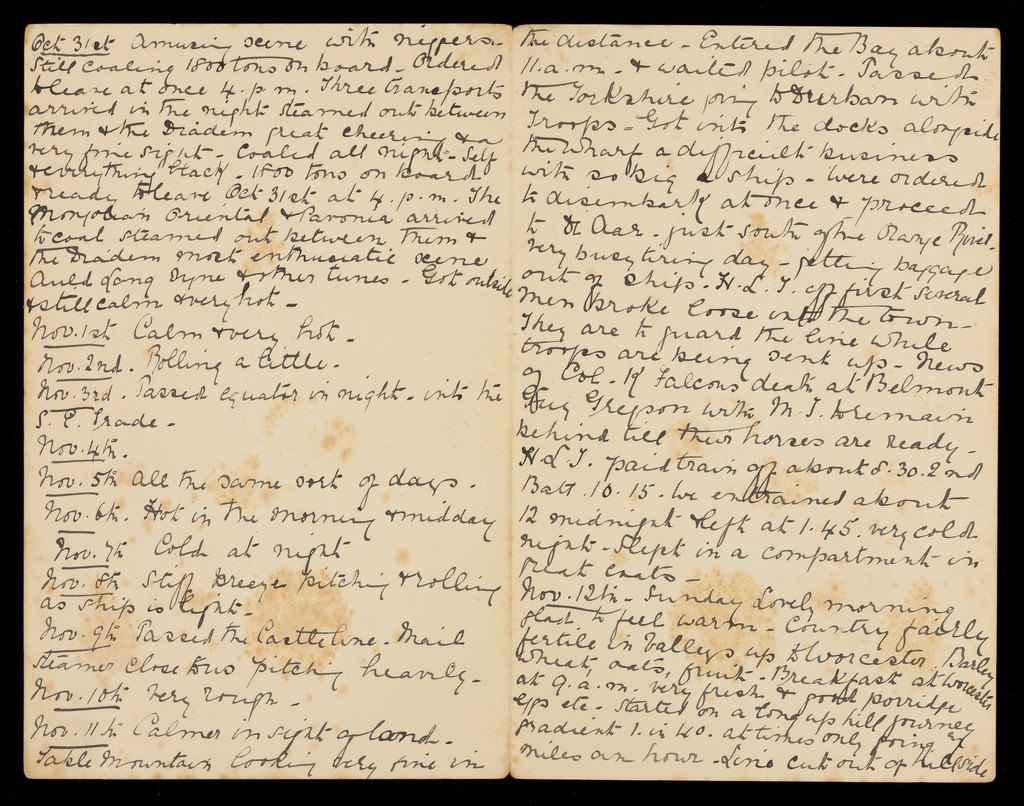 Oct 31st Amusing scene with niggers.
Still coaling 1800 tons on board - Ordered
to leave at once 4. p. m. Three transports
arrived in the night steamed out between
them & the Diadem great cheering & a
very fine sight - Coaled all night - Self
& everything black - 1800 tons on board
& ready to leave Oct 31st at 4. p. m. The
Mongolian Oriental & Pavonia arrived
to coal steamed out between them &
the Diadem most enthusiastic scene
Auld Lang Syne & other tunes - Got outside
& still calm & very hot -
Nov. 1st Calm & very hot -
Nov. 2nd. Rolling a little.
Nov. 3rd. Passed equator in night - into the
S. E. Trade -
Nov. 4th.
Nov. 5th All the same sort of days.
Nov. 6th. Hot in the morning & midday
Nov. 7th Cold at night
Nov. 8th Stiff breeze pitching & rolling
as ship is light -
Nov. 9th Passed the Castle line - Mail
steamer close to us pitching heavily -
Nov. 10th very rough -
Nov. 11th Calmer in sight of land -
Table Mountain looking very fine in
the distance - Entered the Bay about
11. a. m - & waited pilot - Passed
the Yorkshire going to Durban with
Troops - Got into the docks alongside
the Wharf a difficult business
with so big a ship - were ordered
to disembark at once & proceed
to De Aar - just south of the Orange River -
very busy tiring day - getting baggage
out of ship - H. L. I. off first several
men broke loose into the town -
They are to guard the line while
troops are being sent up - News
of Col - K Falcons death at Belmont
Guy Gregson with M. I. to remain
behind till their horses are ready -
H L I. train off about 8. 30. 2nd
Batt. 10. 15. We entrained about
12 midnight & left at 1. 45. very cold
night - Slept in a compartment in
great coats -
Nov. 12th - Sunday Lovely morning
glad to feel warm - Country fairly
fertile in valleys up to Worcester. Barley
wheat, oats, fruit - Breakfast at Worcester
at 9. a. m. very fresh & good porridge
eggs etc - Started on a long up hill journey
gradient 1. in 40. at times only going
miles an hour - Line cut out of hillside